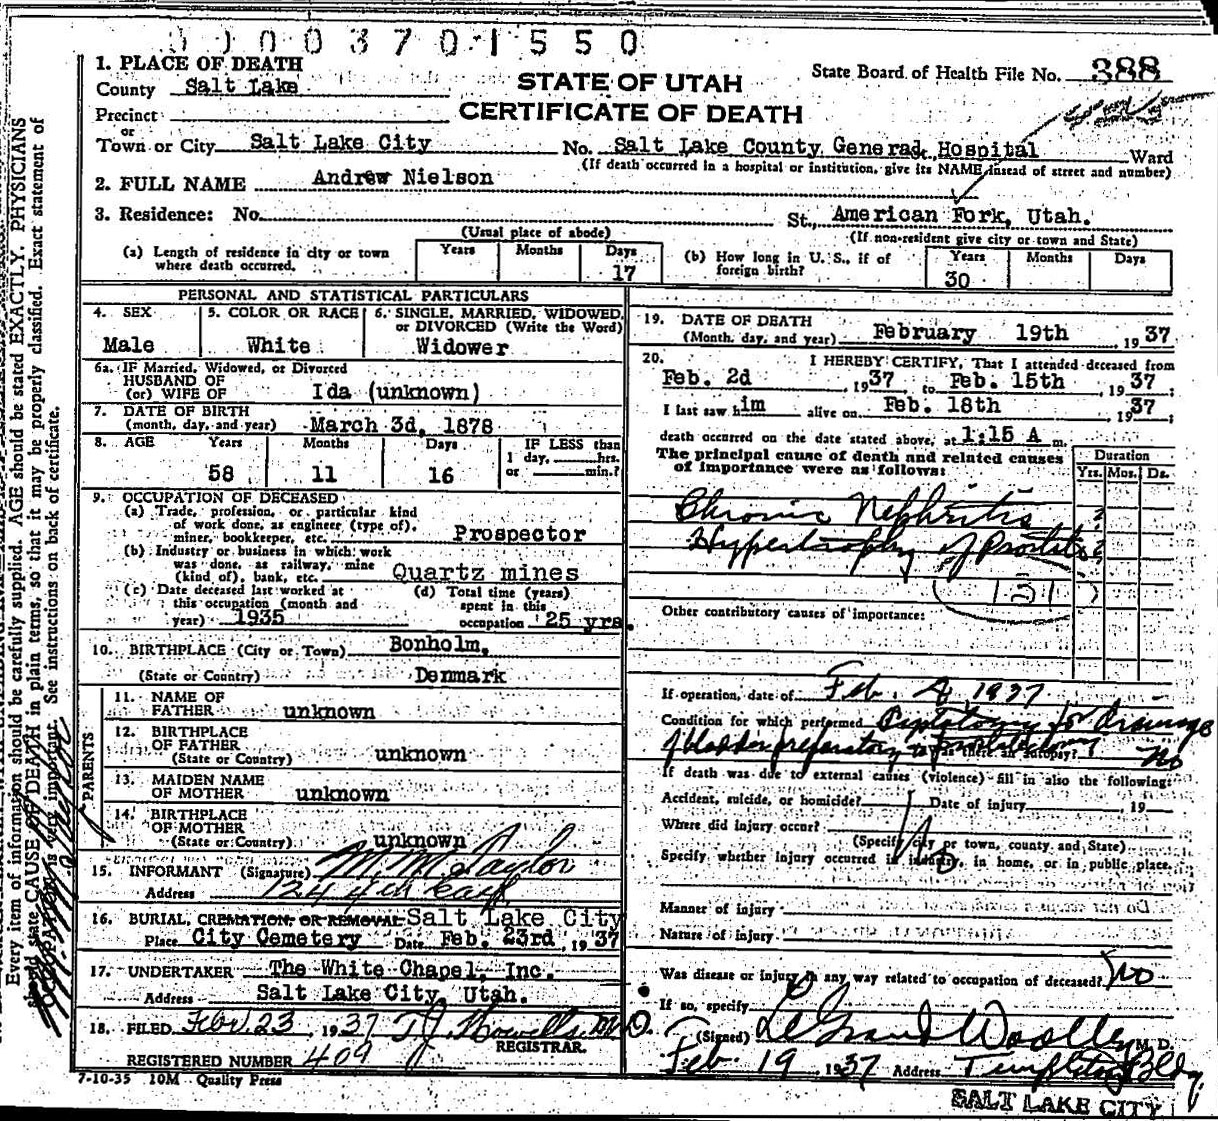 3701550
1. PLACE OF DEATH
County Salt Lake
STATE OF UTAH
CERTIFICATE OF DEATH
State Board of Health File No. 388
Precinct
or
Town or City Salt Lake City No. Salt Lake County General Hospital Ward
(If death occurred in a hospital or institution, give its NAME instead of street and number)
2. FULL NAME Andrew Nielson
3. Residence: No. St., American Fork, Utah.
(Usual place of abode) (If non-resident give city or town and State)
(a) Length of residence in city or town where death occurred. Years Months Days 17
(b) How long in U. S., if of foreign birth? Years 30 Months Days
PERSONAL AND STATISTICAL PARTICULARS
4. SEX Male
5. COLOR OR RACE White
6. SINGLE, MARRIED, WIDOWED, or DIVORCED (Write the Word) Widower
6a. IF Married, Widowed, or Divorced
HUSBAND OF
(or) WIFE OF Ida (unknown)
7. DATE OF BIRTH
(month, day, and year) March 3d, 1878
8. AGE Years 58 Months 11 Days 16 IF LESS than 1 day, hrs. or min.?
9. OCCUPATION OF DECEASED
(a) Trade, profession, or particular kind
of work done, as engineer (type of),
miner, bookkeeper, etc. Prospector
(b) Industry or business in which work
was done, as railway, mine
(kind of), bank, etc. Quartz mines
(c) Date deceased last worked at
this occupation (month and
year) 1935
(d) Total time (years)
spent in this
occupation 25 yrs.
10. BIRTHPLACE (City or Town) Bonholm,
(State or Country) Denmark
PARENTS
11. NAME OF
FATHER unknown
12. BIRTHPLACE
OF FATHER
(State or Country) unknown
13. MAIDEN NAME
OF MOTHER unknown
14. BIRTHPLACE
OF MOTHER
(State or Country) unknown
15. INFORMANT (Signature) M. M. Taylor
Address 124 4th East
16. BURIAL, CREMATION, OR REMOVAL Salt Lake City
Place City Cemetery Date Feb. 23rd, 1937
17. UNDERTAKER The White Chapel, Inc.
Address Salt Lake City, Utah.
18. FILED Feb. 23, 1937 T J Howells M.D.
REGISTRAR.
REGISTERED NUMBER 409
7-10-35 10M Quality Press
19. DATE OF DEATH
(Month, day, and year) February 19th, 1937
20. I HEREBY CERTIFY, That I attended deceased from
Feb. 2d, 1937 to Feb. 15th, 1937;
I last saw him alive on Feb. 18th, 1937;
death occurred on the date stated above, at 1:15 A m.
The principal cause of death and related causes
of importance were as follows:
Duration
Yrs. Mos. Ds.
Chronic Nephritis ?
Hypertrophy of Prostate ?
131
Other contributory causes of importance:
If operation, date of Feb. 4 1937
Condition for which performed Cystotomy for drainage
of bladder preparatory to prostatectomy Was there an autopsy? No
If death was due to external causes (violence) fill in also the following:
Accident, suicide, or homicide? Date of injury 19
Where did injury occur?
(Specify city or town, county and State)
Specify whether injury occurred in industry, in home, or in public place.
Manner of injury
Nature of injury
Was disease or injury in any way related to occupation of deceased? No
If so, specify
(Signed) LeGrand Woolley M. D.
Feb. 19, 1937 Address Templeton Bldg.
SALT LAKE CITY
Every item of information should be carefully supplied. AGE should be stated EXACTLY. PHYSICIANS
should state CAUSE OF DEATH in plain terms, so that it may be properly classified. Exact statement of
OCCUPATION is very important. See instructions on back of certificate.